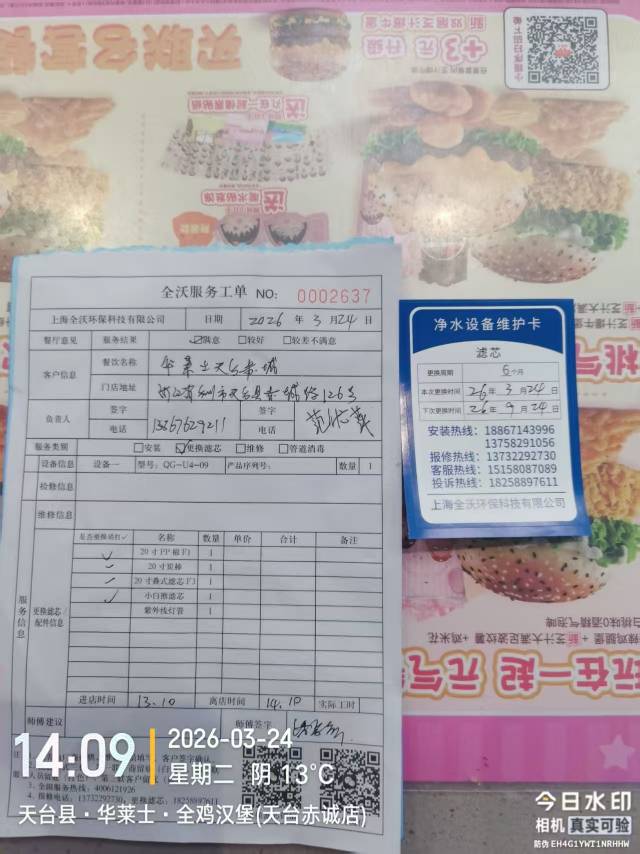 全沃服务工单 NO: 0002637
上海全沃环保科技有限公司 日期 2026 年 3 月 24 日
餐厅意见 服务结果 ☑满意 □较好 □较差不满意
客户信息 餐饮名称 华莱士天台赤城
门店地址 浙江省台州市天台县赤城路126号
负责人 签字 签字
电话 13867629211 电话
服务类别 □安装 ☑更换滤芯 □维修 □管道消毒
设备信息 设备一 型号: QG-U4-09 产品序列号: 数量 1
检修信息
维修信息
服务信息
更换滤芯/配件信息
是否更换请打✓ 名称 数量 单价 合计 备注
✓ 20寸PP棉 1
✓ 20寸炭棒 1
✓ 20寸叠式滤芯 1
✓ 小白擦滤芯 1
紫外线灯管 1
进店时间 13.10 离店时间 14.10 实际工时
师傅建议 师傅签字
全国服务热线: 4006121926
报修电话: 13732292730 投诉电话: 18258897611
净水设备维护卡
滤芯
更换周期 6 个月
本次更换时间 26 年 3 月 24 日
下次更换时间 26 年 9 月 24 日
安装热线: 18867143996
13758291056
报修热线: 13732292730
客服热线: 15158087089
投诉热线: 18258897611
上海全沃环保科技有限公司
买联名套餐
+3元 升级
送
送
玩在一起 元气
14:09
2026-03-24
星期二 阴 13°C
天台县·华莱士·全鸡汉堡(天台赤诚店)
今日水印
相机 真实可验
防伪 EH4G1YWT1NRHHW